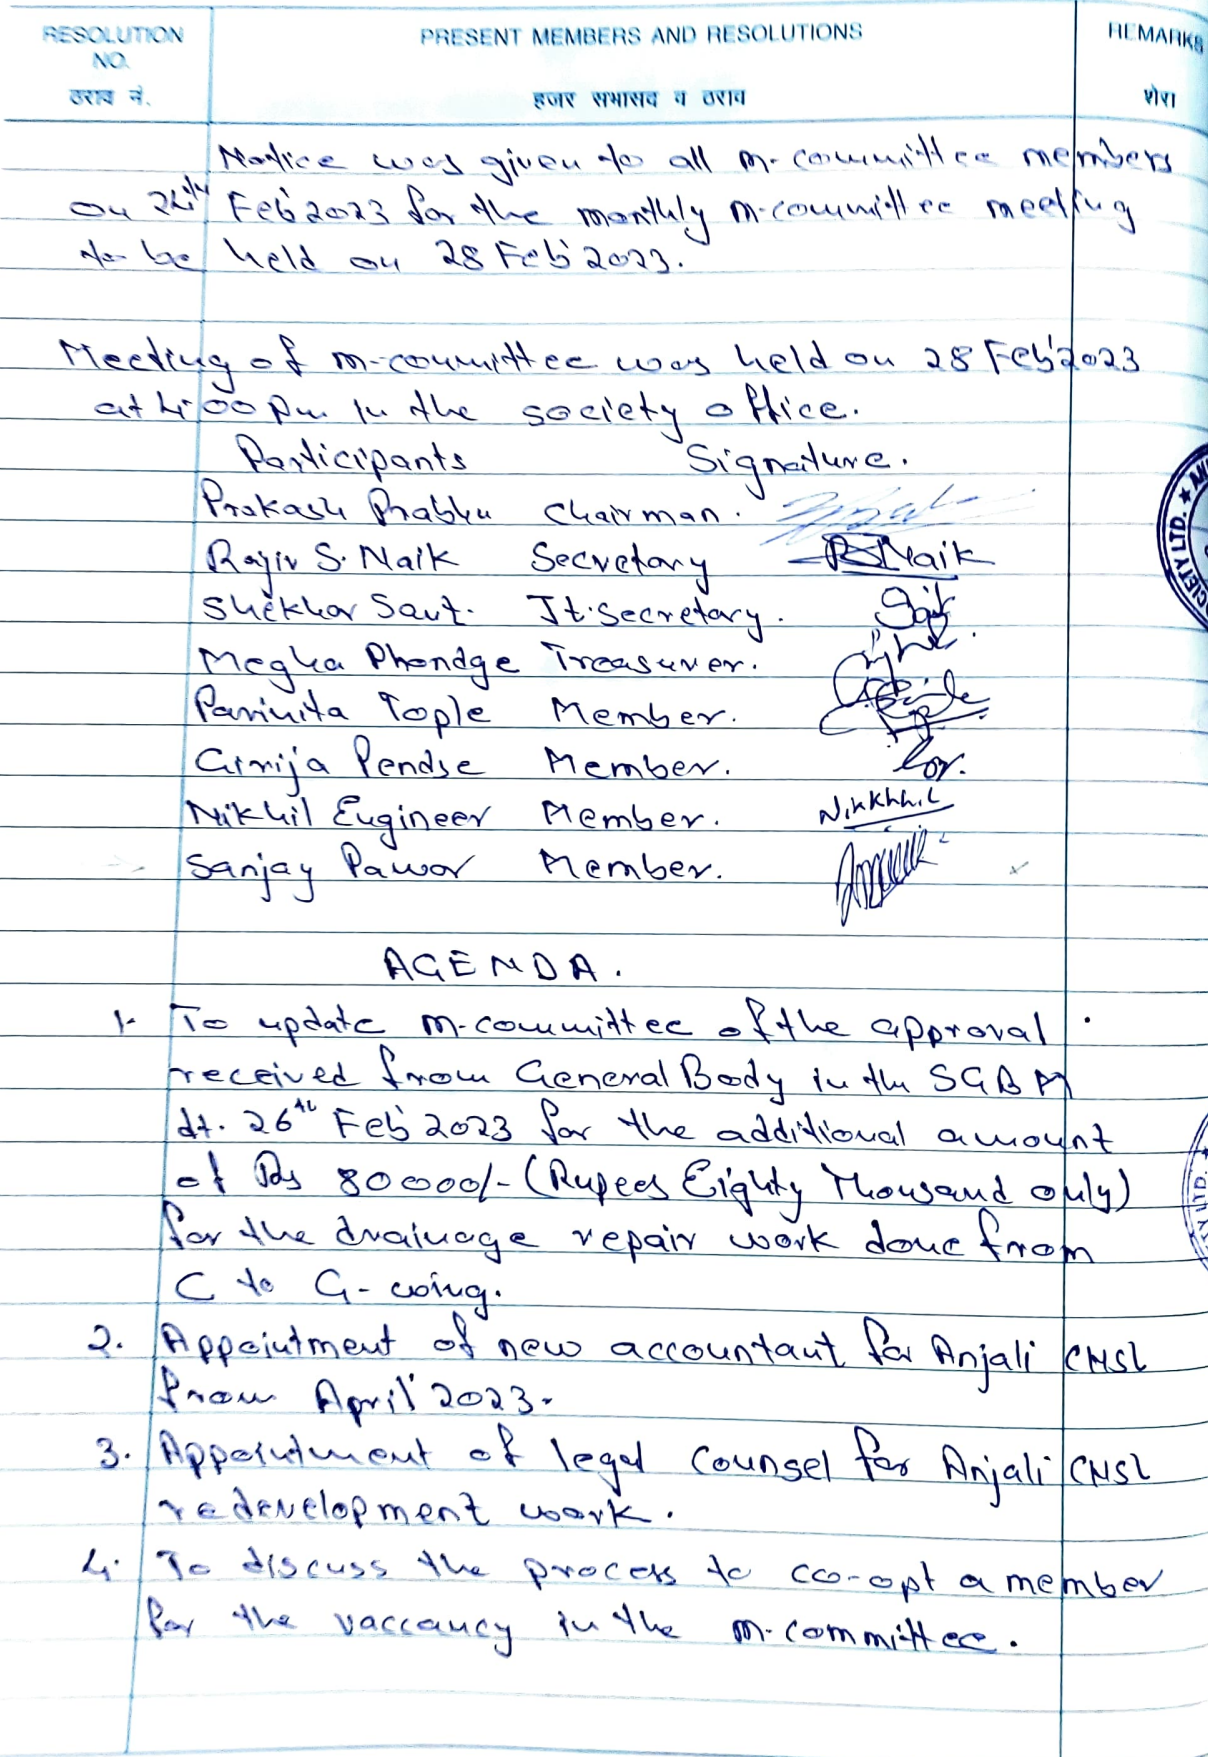 RESOLUTION NO. PRESENT MEMBERS AND RESOLUTIONS REMARKS
ठराव नं. हजर सभासद व ठराव शेरा
Notice was given to all m-committee members
on 24th Feb'2023 for the monthly m-committee meeting
to be held on 28 Feb'2023.
Meeting of m-committee was held on 28 Feb'2023
at 4:00 pm in the society office.
Participants Signature.
Prakash Prabhu Chairman.
Rajiv S. Naik Secretary RSNaik
Shekhar Saut. Jt. Secretary.
Megha Phondge Treasurer.
Parinita Tople Member.
Girija Pendse Member.
Nikhil Engineer Member. Nikkhhil
Sanjay Pawar Member.
AGENDA.
1- To update m-committee of the approval
received from General Body in the SGBM
dt. 26th Feb'2023 for the additional amount
of Rs 80000/- (Rupees Eighty Thousand only)
for the drainage repair work done from
C to G-wing.
2. Appointment of new accountant for Anjali CHSL
from April'2023.
3. Appointment of legal Counsel for Anjali CHSL
redevelopment work.
4. To discuss the process to co-opt a member
for the vaccancy in the m-committee.